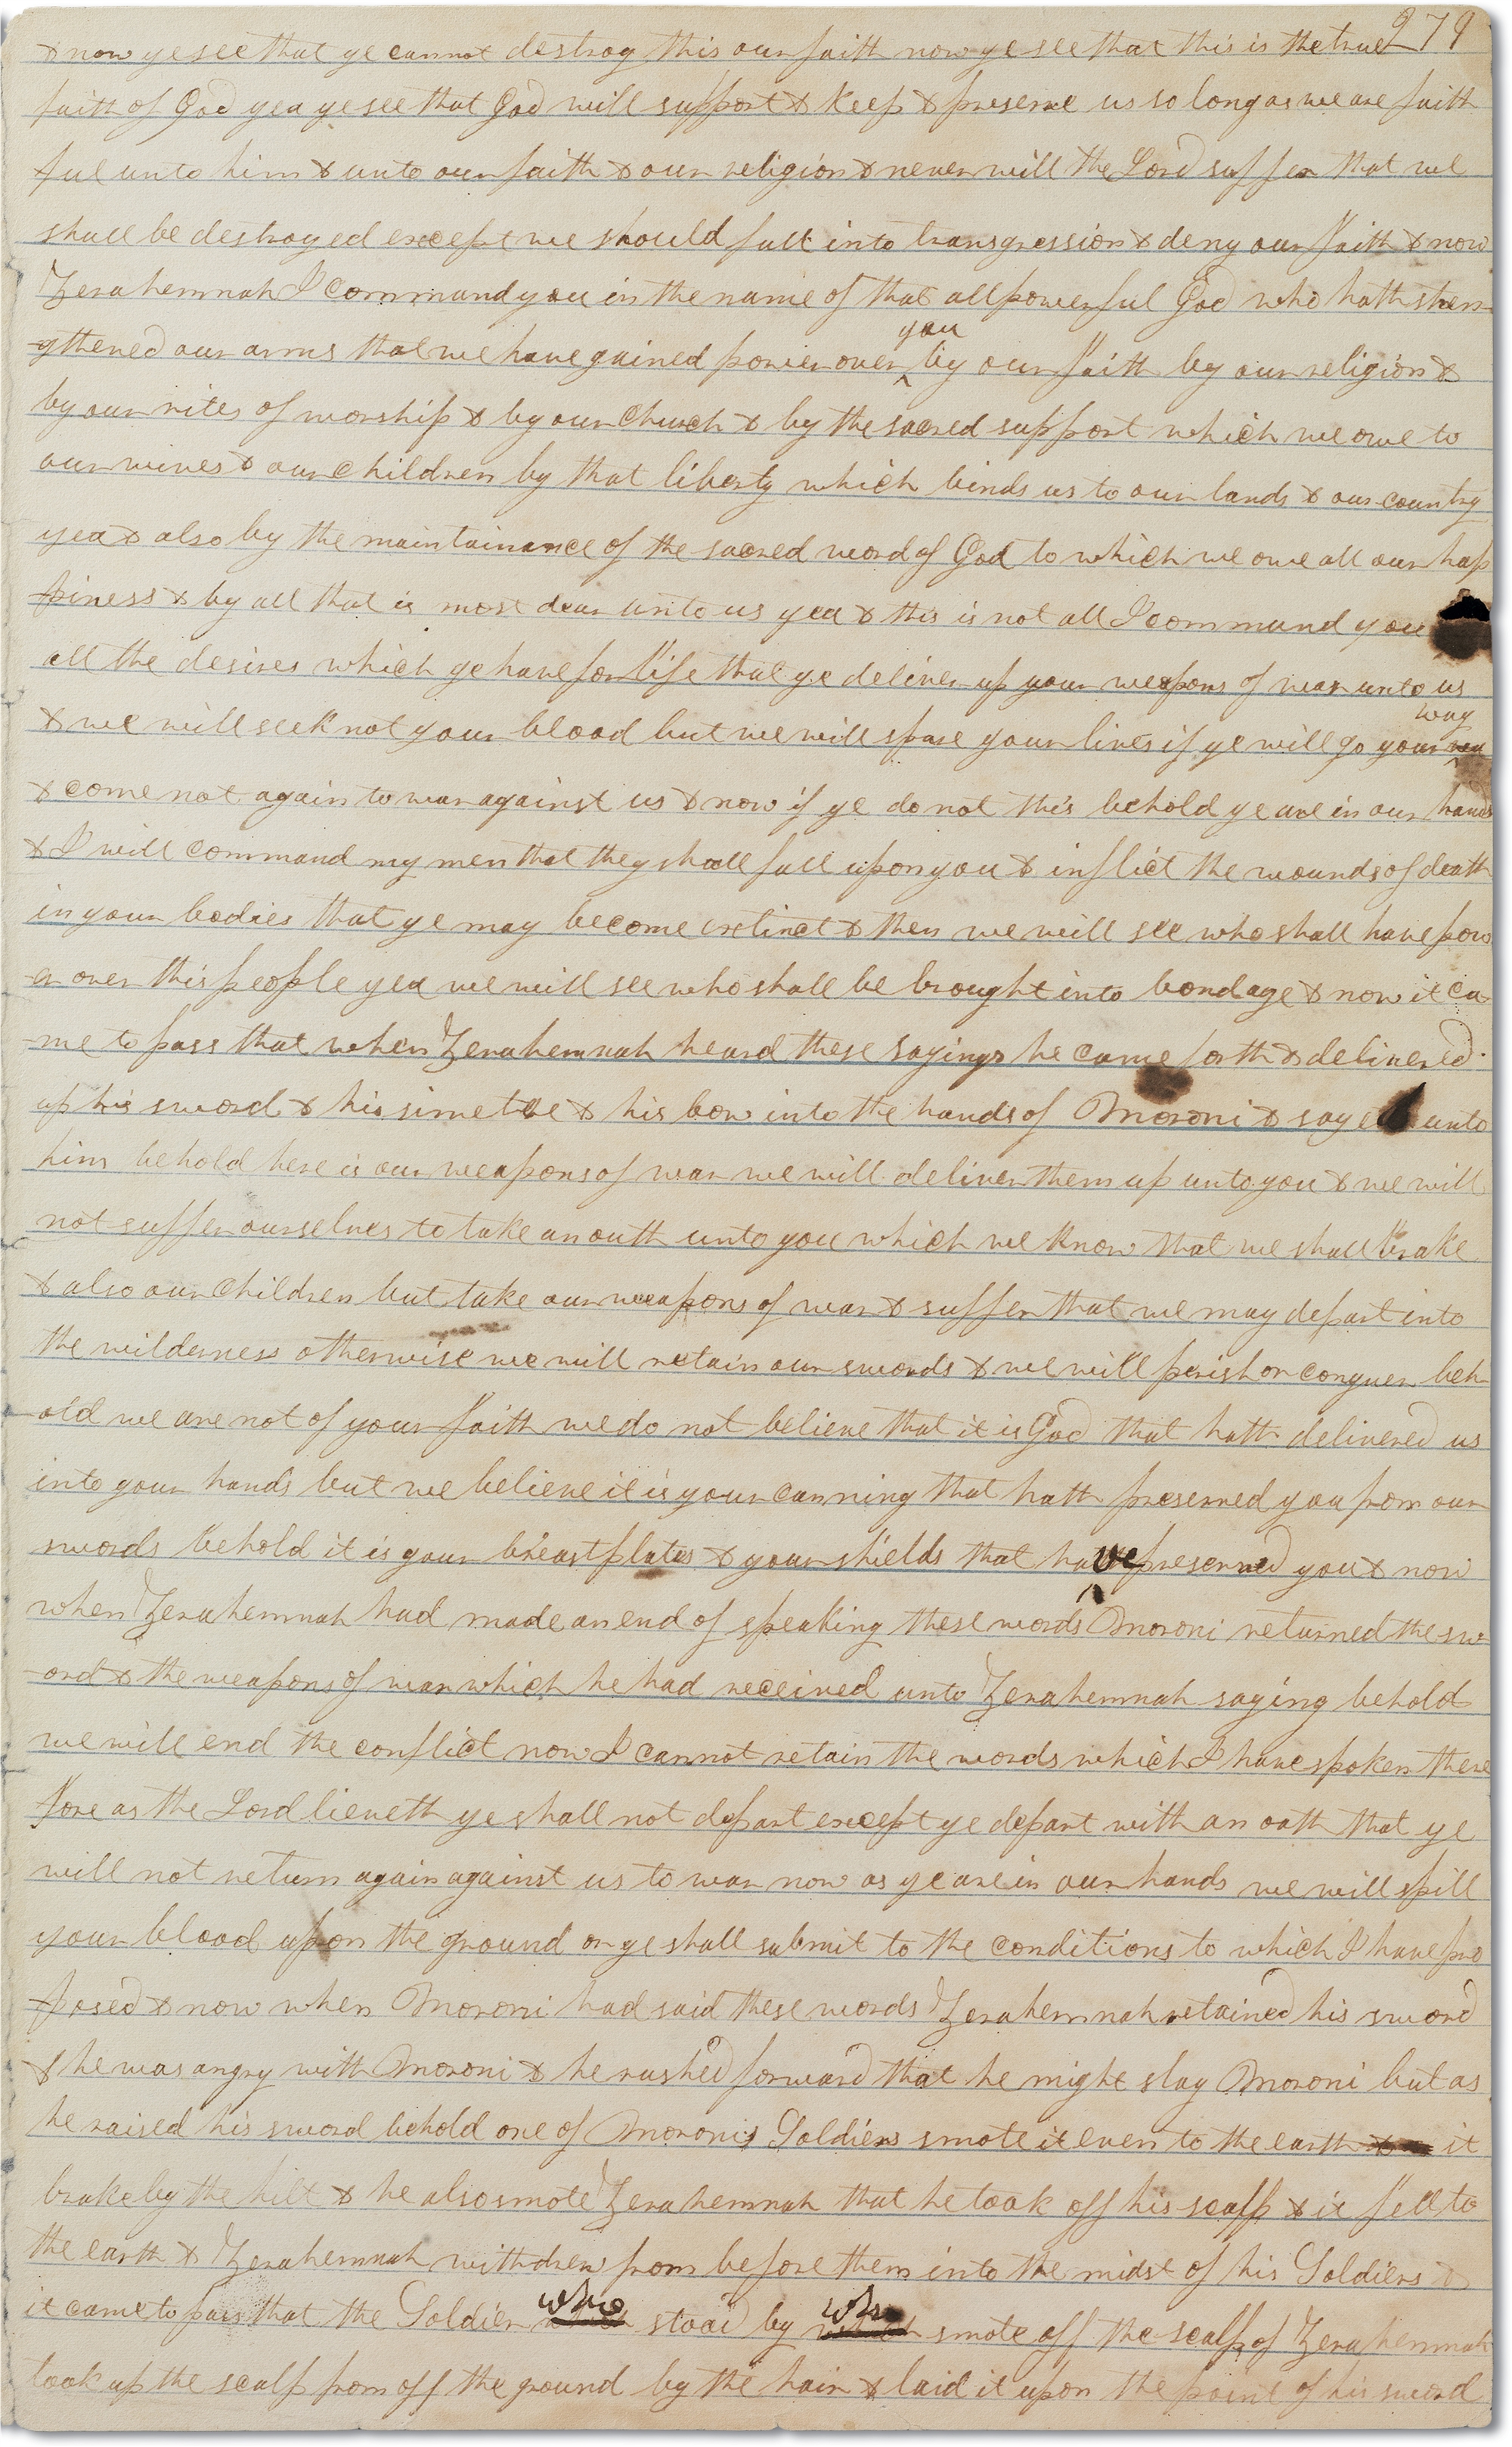 279
& now ye see that ye cannot destroy this our faith now ye see that this is the true
faith of God yea ye see that God will support & keep & preserve us so long as we are faith
ful unto him & unto our faith & our religion & never will the Lord suffer that we
shall be destroyed except we should fall into transgression & deny our faith & now
Zerahemnah I command you in the name of that all powerful God who hath stren
-gthened our arms that we have gained power over you by our faith by our religion &
by our rites of worship & by our Church & by the sacred support which we owe to
our wives & our children by that liberty which binds us to our lands & our country
yea & also by the maintainance of the sacred word of God to which we owe all our hap
piness & by all that is most dear unto us yea & this is not all I command you
all the desires which ye have for life that ye deliver up your weapons of war unto us
& we will seek not your blood but we will spare your lives if ye will go your way
& come not again to war against us & now if ye do not this behold ye are in our hands
& I will command my men that they shall fall upon you & inflict the wounds of death
in your bodies that ye may become extinct & then we will see who shall have pow
-er over this people yea we will see who shall be brought into bondage & now it ca
-me to pass that when Zerahemnah heard these sayings he came forth & delivered
up his sword & his simetre & his bow into the hands of Moroni & sayed unto
him behold here is our weapons of war we will deliver them up unto you & we will
not suffer ourselves to take an oath unto you which we know that we shall brake
& also our children but take our weapons of war & suffer that we may depart into
the wilderness otherwise we will retain our swords & we will perish or conquer beh
-old we are not of your faith we do not believe that it is God that hath delivered us
into your hands but we believe it is your cunning that hath preserved you from our
swords behold it is your breastplates & your shields that have preserved you & now
when Zerahemnah had made an end of speaking these words Moroni returned the sw
-ord & the weapons of war which he had received unto Zerahemnah saying behold
we will end the conflict now I cannot retain the words which I have spoken there
fore as the Lord liveth ye shall not depart except ye depart with an oath that ye
will not return again against us to war now as ye are in our hands we will spill
your blood upon the ground or ye shall submit to the conditions to which I have pro
posed & now when Moroni had said these words Zerahemnah retained his sword
& he was angry with Moroni & he rushed forward that he might slay Moroni but as
he raised his sword behold one of Moronis Soldiers smote it even to the earth & it
brake by the hilt & he also smote Zerahemnah that he took off his scalp & it fell to
the earth & Zerahemnah withdrew from before them into the midst of his Soldiers &
it came to pass that the Soldier who stood by who smote off the scalp of Zerahemnah
took up the scalp from off the ground by the hair & laid it upon the point of his sword